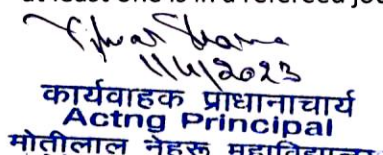 at least one is in a refereed jou
11/4/2023
कार्यवाहक प्राधानाचार्य
Actng Principal
मोतीलाल नेहरू महाविद्यालय